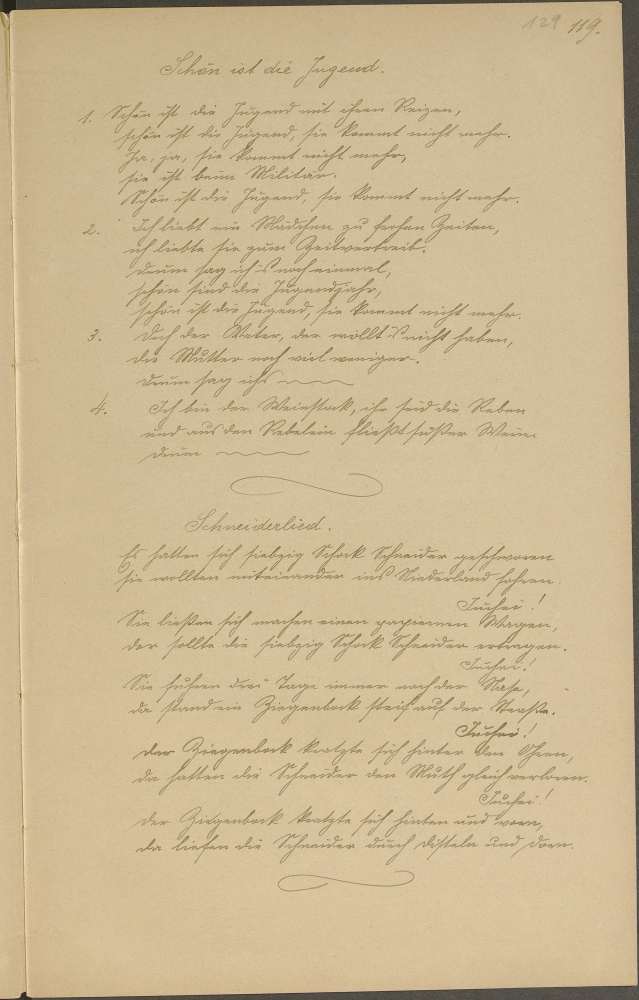 129 119.
Schön ist die Jugend.
1. Schön ist die Jugend mit ihren Reizen,
schön ist die Jugend, sie kommt nicht mehr.
Ja, ja, sie kommt nicht mehr,
sie ist beim Militär.
Schön ist die Jugend, sie kommt nicht mehr.
2. Ich liebt ein Mädchen zu frohen Zeiten,
ich liebte sie zum Zeitvertreib.
Drum sag ich's noch einmal,
schön sind die Jugendjahr,
schön ist die Jugend, sie kommt nicht mehr.
3. Doch der Vater, der wollt's nicht haben,
die Mutter noch viel weniger.
Drum sag ichs
4. Ich bin der Weinstock, ihr seid die Reben
und aus den Rebelein fließt süßer Wein
Drum
Schneiderlied.
Es hatten sich siebzig Schock Schneider geschworen
sie wollten miteinander ins Niederland fahren.
Juchei!
Sie ließen sich machen einen papiernen Wagen,
der sollte die siebzig Schock Schneider ertragen.
Juchei!
Sie fuhren drei Tage immer nach der Nase,
da stand ein Ziegenbock steif auf der Straße.
Juchei!
Der Ziegenbock kratzte sich hinter den Ohren,
da hatten die Schneider den Muth gleich verloren.
Juchei!
Der Ziegenbock kratzte sich hinten und vorn,
da liefen die Schneider durch Disteln und Dorn.